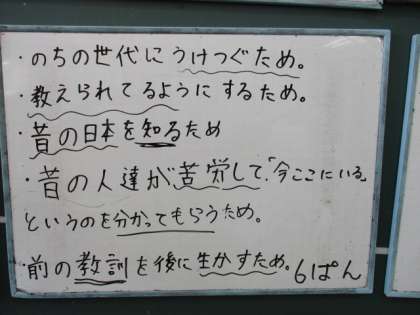 ・のちの世代にうけつぐため。
・教えられてるようにするため。
・昔の日本を知るため
・昔の人達が苦労して、「今ここにいる」
というのを分かってもらうため。
・前の教訓を後に生かすため。6ぱん